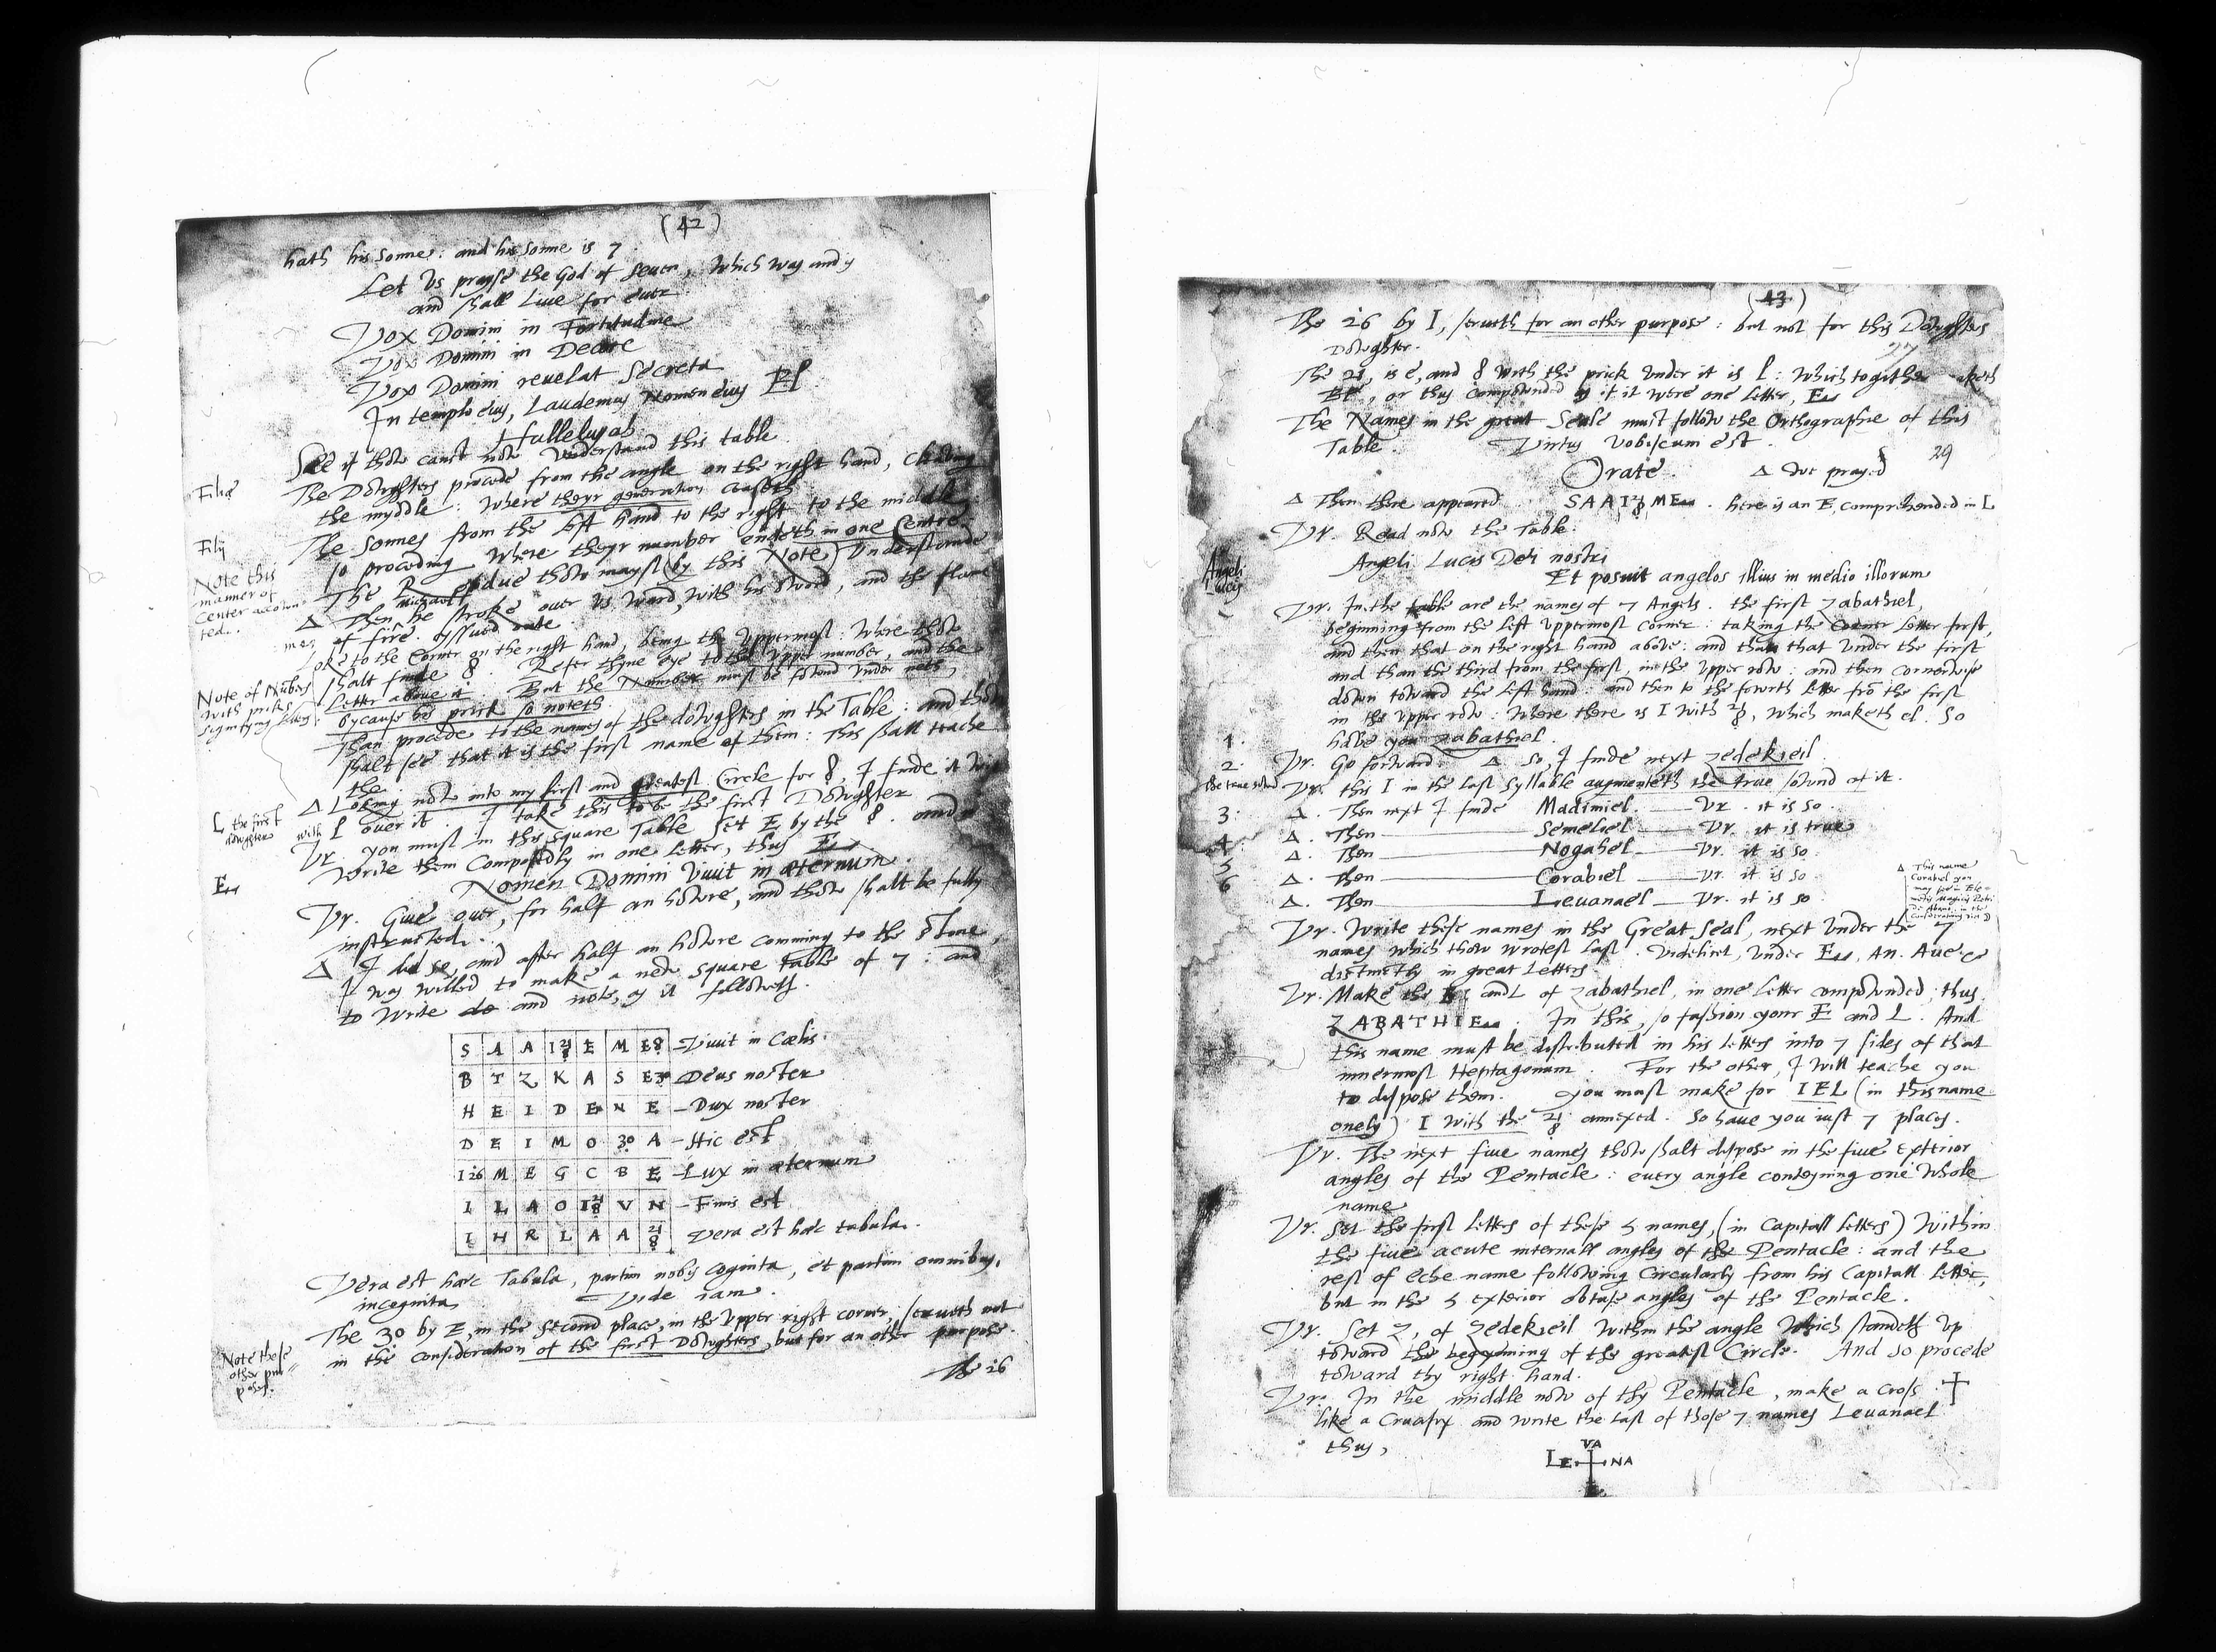 (42)
hath his sonne: and his sonne is 7
Let Us prayse the God of Seven, Which Was and ys
and shall Live for ever
Vox Domini in Fortitudine
Vox Domini in Decore
Vox Domini revelat Secreta
In templo eius, Laudemus Nomen eius El
Halleluyah
See if thow canst now Understand this table
Filiæ
The Dowghters procede from the angle on the right hand,
the myddle: Where theyr generation ceaseth
Filij
The Sonnes from the left hand to the right to the middle
so proceding Where theyr number endeth in one Centre
Note this
manner of
Center accown
ted.
The Residue thow mayst (by this Note) Understande
Δ Then he Michael stroke over Us Ward, With his Sword, and the flame
of fire yssued oute
Loke to the Corner on the right hand, being the Uppermost: Where thow
shalt finde 8. Refer thyne eye to the Upper number, and the
Letter above it. But the Number must be fownd Under neth,
bycause his prick so noteth
Note of Nũbers
With pricks
signifying letters
Than procede to the names of the dowghters in the Table: and thow
shalt see that it is the first name of them: This shall teache
the
Δ Loking now into my first and greatest Circle for 8, I finde it
with l over it. I take this to be the first Dowghter
L, the first
dowghter
Vr. you must in this square Table Set E by the 8. and
Write them Compositly in one letter, thus E
Nomen Domini Vivit in æternum.
Vr. Give over, for half an howre, and thow shalt be fully
instructed.
Δ I did so, and after half an howre comming to the Stone,
I was willed to make a new square table of 7: and
to Write and note, as it followeth.
S A A I21/8 E M E8 - Vivit in Cœlis.
B T Z K A S E30 - Deus noster
H E I D E N E - Dux noster
D E I M O 30 A - Hic est
I26 M E G C B E - Lux in æternum
I L A O I21/8 V N - Finis est
I H R L A A 21/8 Vera est hæc tabula.
Vera est hæc Tabula, partim nobis cognita, et partim omnibus,
incognita Vide iam.
The 30 by E, in the second place, in the Upper right corner, serveth not
in the consideration of the first Dowghters, but for an other purpose.
Note these
other pur
poses.
The 26
(43)
The 26 by I, serveth for an other purpose: but not for this Dowghters
Dowghter.
The 21, is e, and 8 with the prick Under it is l: Which togither maketh
El, or thus compownded as if it Were one letter, E
The Names in the great Seale must follow the Orthographie of this
Table. Virtus Vobiscum est.
Orate. Δ We prayed
29
Δ Then there appeared SAAI21/8ME. here is an E, comprehended in L
Vr. Read now the Table.
Angeli Lucis Dei nostri
Et posuit angelos illius in medio illorum
Angeli
lucis
Vr. In the table are the names of 7 Angels. the first Zabathiel,
beginning from the left Uppermost corner: taking the Corner Letter first,
and then that on the right hand above: and than that Under the first
and than the third from the first, in the Upper row: and then cornerwise
down toward the left hand: and then to the fowrth letter frõ the first
in the Upper row: Where there is I With 21/8, Which maketh el. So
1. have you Zabathiel.
2. Vr. Go forward. Δ. So, I finde next Zedekieil.
Vr. this I in the last Syllable augmenteth the true sownd of it.
3: Δ. Then next I finde Madimiel. Vr. it is so.
4. Δ. Then Semeliel Vr. it is true
5 Δ. Then Nogahel Vr. it is so
6 Δ. Then Corabiel Vr. it is so
Δ. Then Levanael Vr. it is so
Δ This name
Corabiel you
may see in Ele=
Vr. Write these names in the Great Seal, next Under the 7
names Which thow wrotest last. Videlicet, Under E, An. Ave &c
distinctly in great letters
Vr. Make the E and L of Zabathiel, in one letter compownded; thus
ZABATHIE. In this, so fashion your E and L. And
this name must be distributed in his letters into 7 sides of that
innermost Heptagonum. For the other, I will teache you
to dispose them. you must make for IEL (in this name
onely) I With the 21/8 annexed. So have you iust 7 places.
Vr. The next five names thow shalt dispose in the five exterior
angles of the Pentacle: every angle conteyning one Whole
name
Vr. Set the first letters of these 5 names, (in Capitall letters) Within
the five acute internall angles of the Pentacle: and the
rest of eche name following Circularly from his Capitall letter,
but in the 5 exterior obtuse angles of the Pentacle.
Vr. Set Z, of Zedekieil Within the angle Which standeth Up
toward the begynning of the greatest Circle. And so procede
toward thy right hand.
Vr. In the middle now of thy Pentacle, make a Cross
like a Crucifix and write the last of those 7 names Levanael
thus,
VA
LE NA